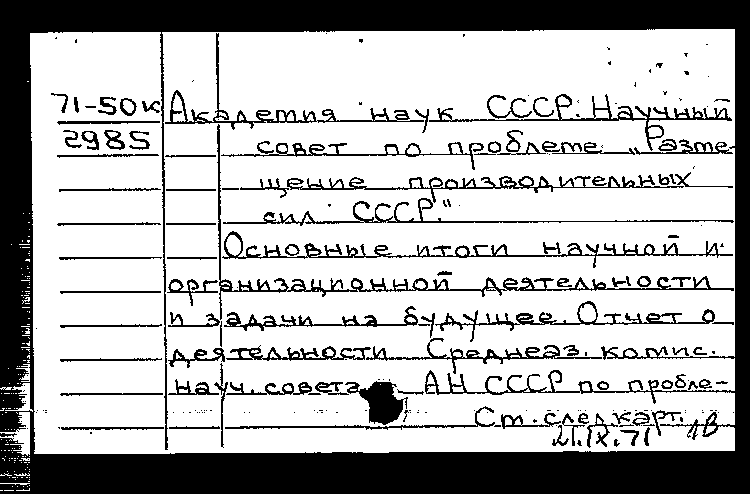 71-50к Академия наук СССР. Научный
2985 совет по проблеме „Разме-
щение производительных
сил СССР."
Основные итоги научной и
организационной деятельности
и задачи на будущее. Отчет о
деятельности Среднеаз. комис.
науч. совета АН СССР по пробле-
См. след карт.
21.IX.71 1В